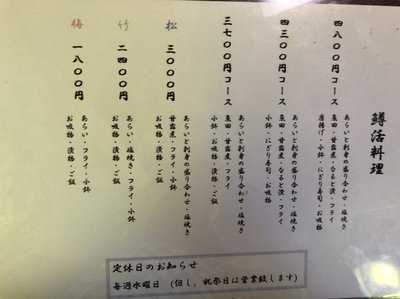 鱒活料理
四八〇〇円コース
あらいと刺身の盛り合わせ・塩焼き
魚田・甘露煮・なると漬・フライ
唐揚げ・小鉢・にぎり寿司・お吸物
四三〇〇円コース
あらいと刺身の盛り合わせ・塩焼き
魚田・甘露煮・なると漬・フライ
小鉢・にぎり寿司・お吸物
三七〇〇円コース
あらいと刺身の盛り合わせ・塩焼き
魚田・甘露煮・フライ
小鉢・お吸物・漬物・ご飯
松 三〇〇〇円
あらいと刺身の盛り合わせ・塩焼き
甘露煮・フライ・小鉢
お吸物・漬物・ご飯
竹 二四〇〇円
あらい・塩焼き・フライ・小鉢
お吸物・漬物・ご飯
梅 一八〇〇円
あらい・フライ・小鉢
お吸物・漬物・ご飯
定休日のお知らせ
毎週水曜日 (但し、祝祭日は営業致します)